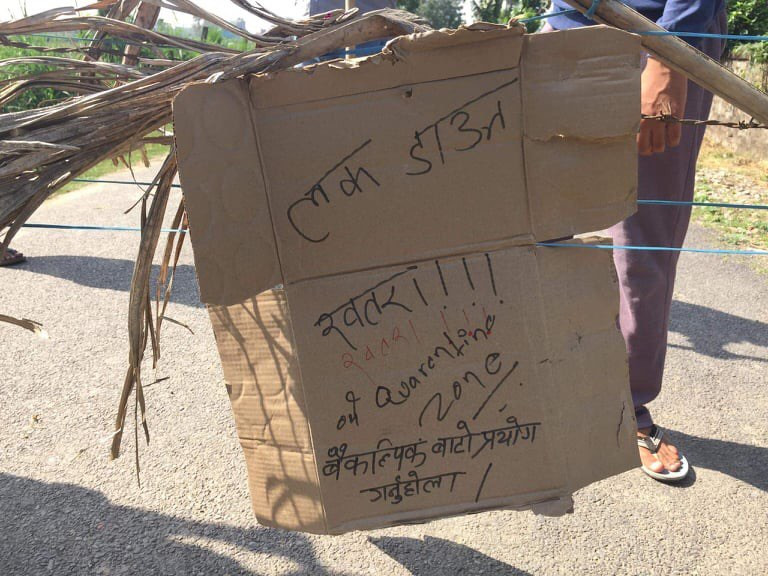 लक डाउन
खतरा!!!!
खतरा!!!
यो Quarentine
zone/
बैकल्पिक बाटो प्रयोग
गर्नुहोला /